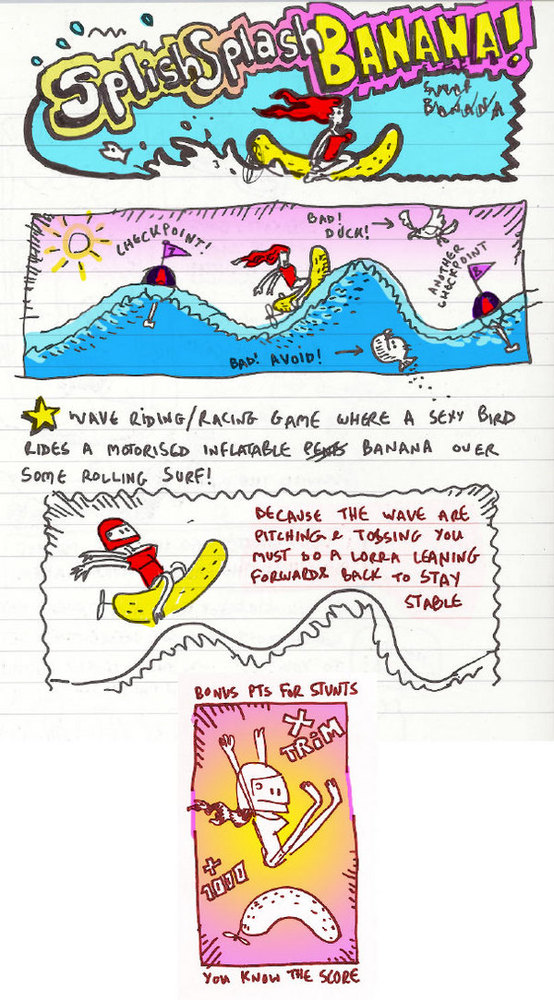 SplishSplash BANANA!
BANANA
CHECKPOINT!
7
BAD!
DUCK!
ANOTHER
CHECKPOINT
8
BAD! AVOID!
WAVE RIDING/RACING GAME WHERE A SEXY BIRD
RIDES A MOTORISED INFLATABLE BANANA OVER
SOME ROLLING SURF!
BECAUSE THE WAVE ARE
PITCHING & TOSSING YOU
MUST DO A LORRA LEANING
FORWARD & BACK TO STAY
STABLE
BONUS PTS FOR STUNTS
X
TRIM
+
1000
YOU KNOW THE SCORE